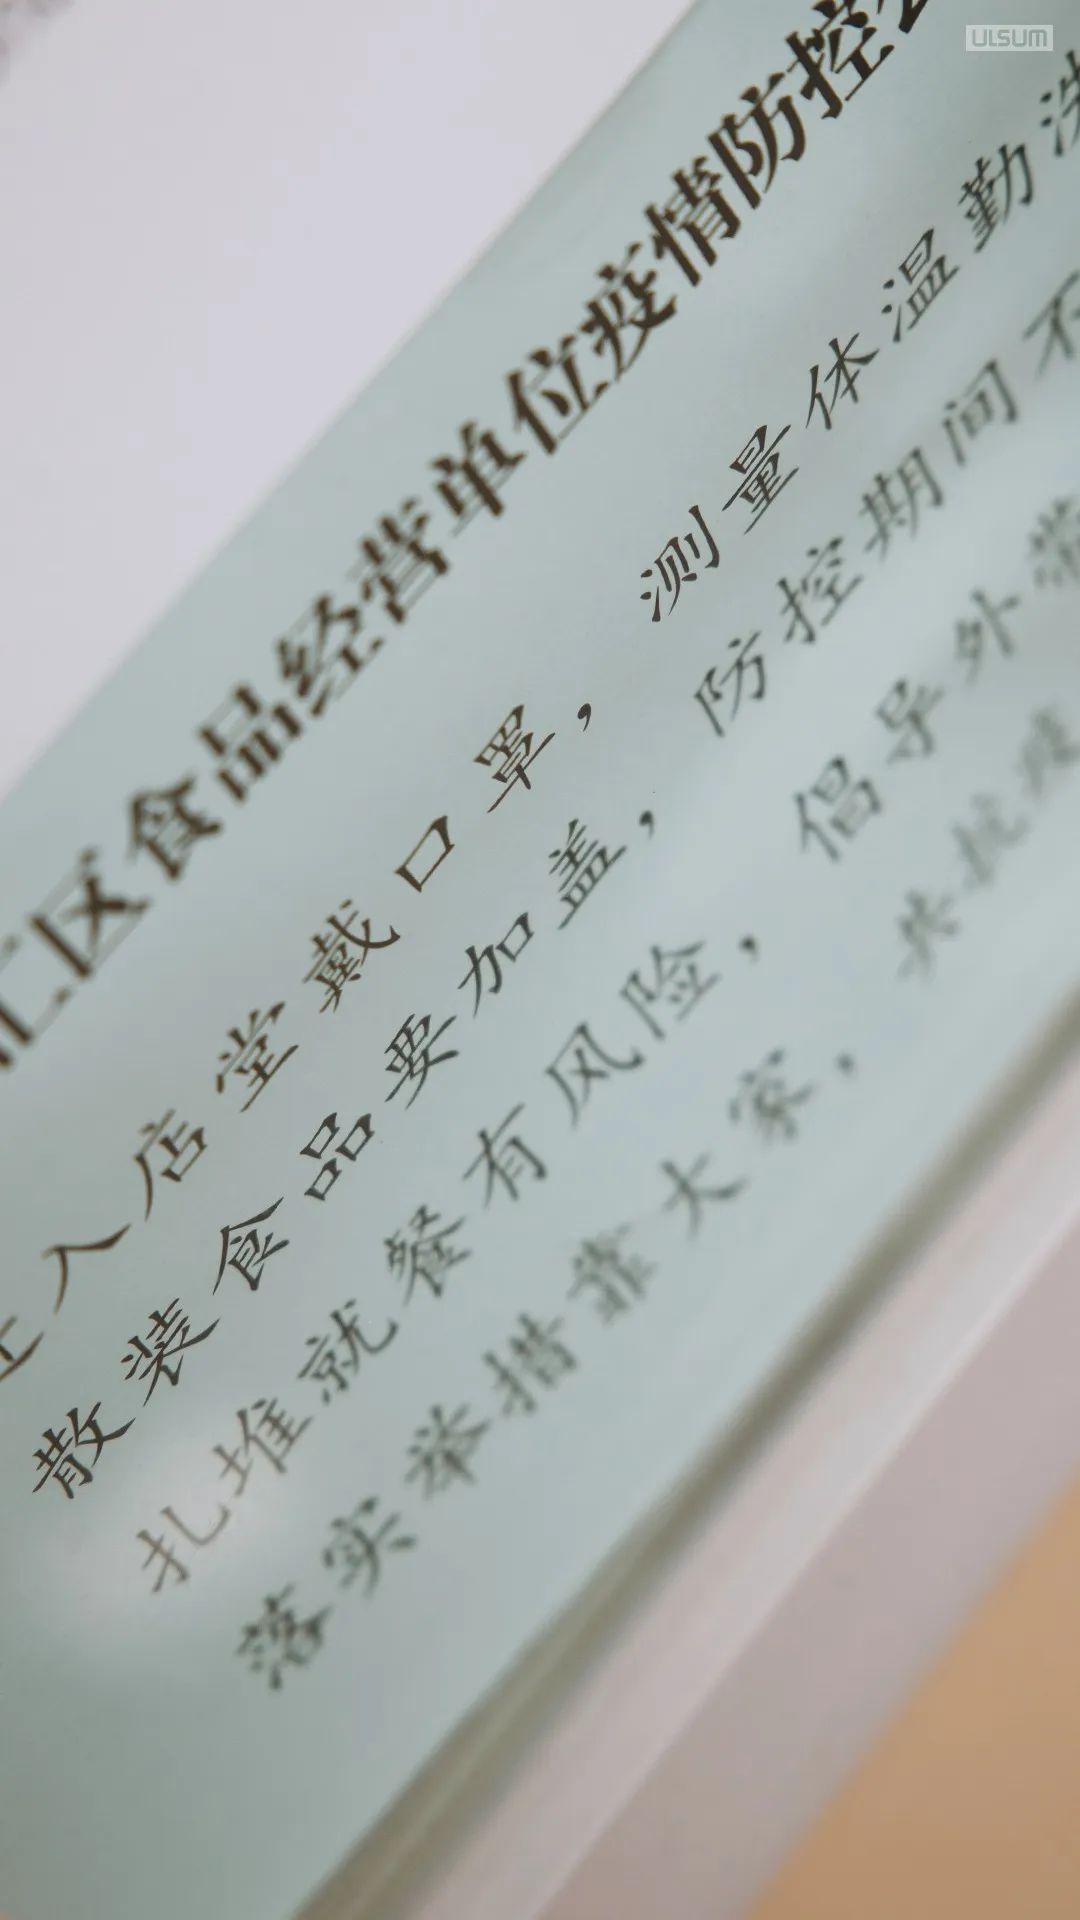 ULSUM
汇区食品经营单位疫情防控
入店堂戴口罩，测量体温勤洗
散装食品要加盖，防控期间不
扎堆就餐有风险，倡导外带
落实举措靠大家，共抗疫